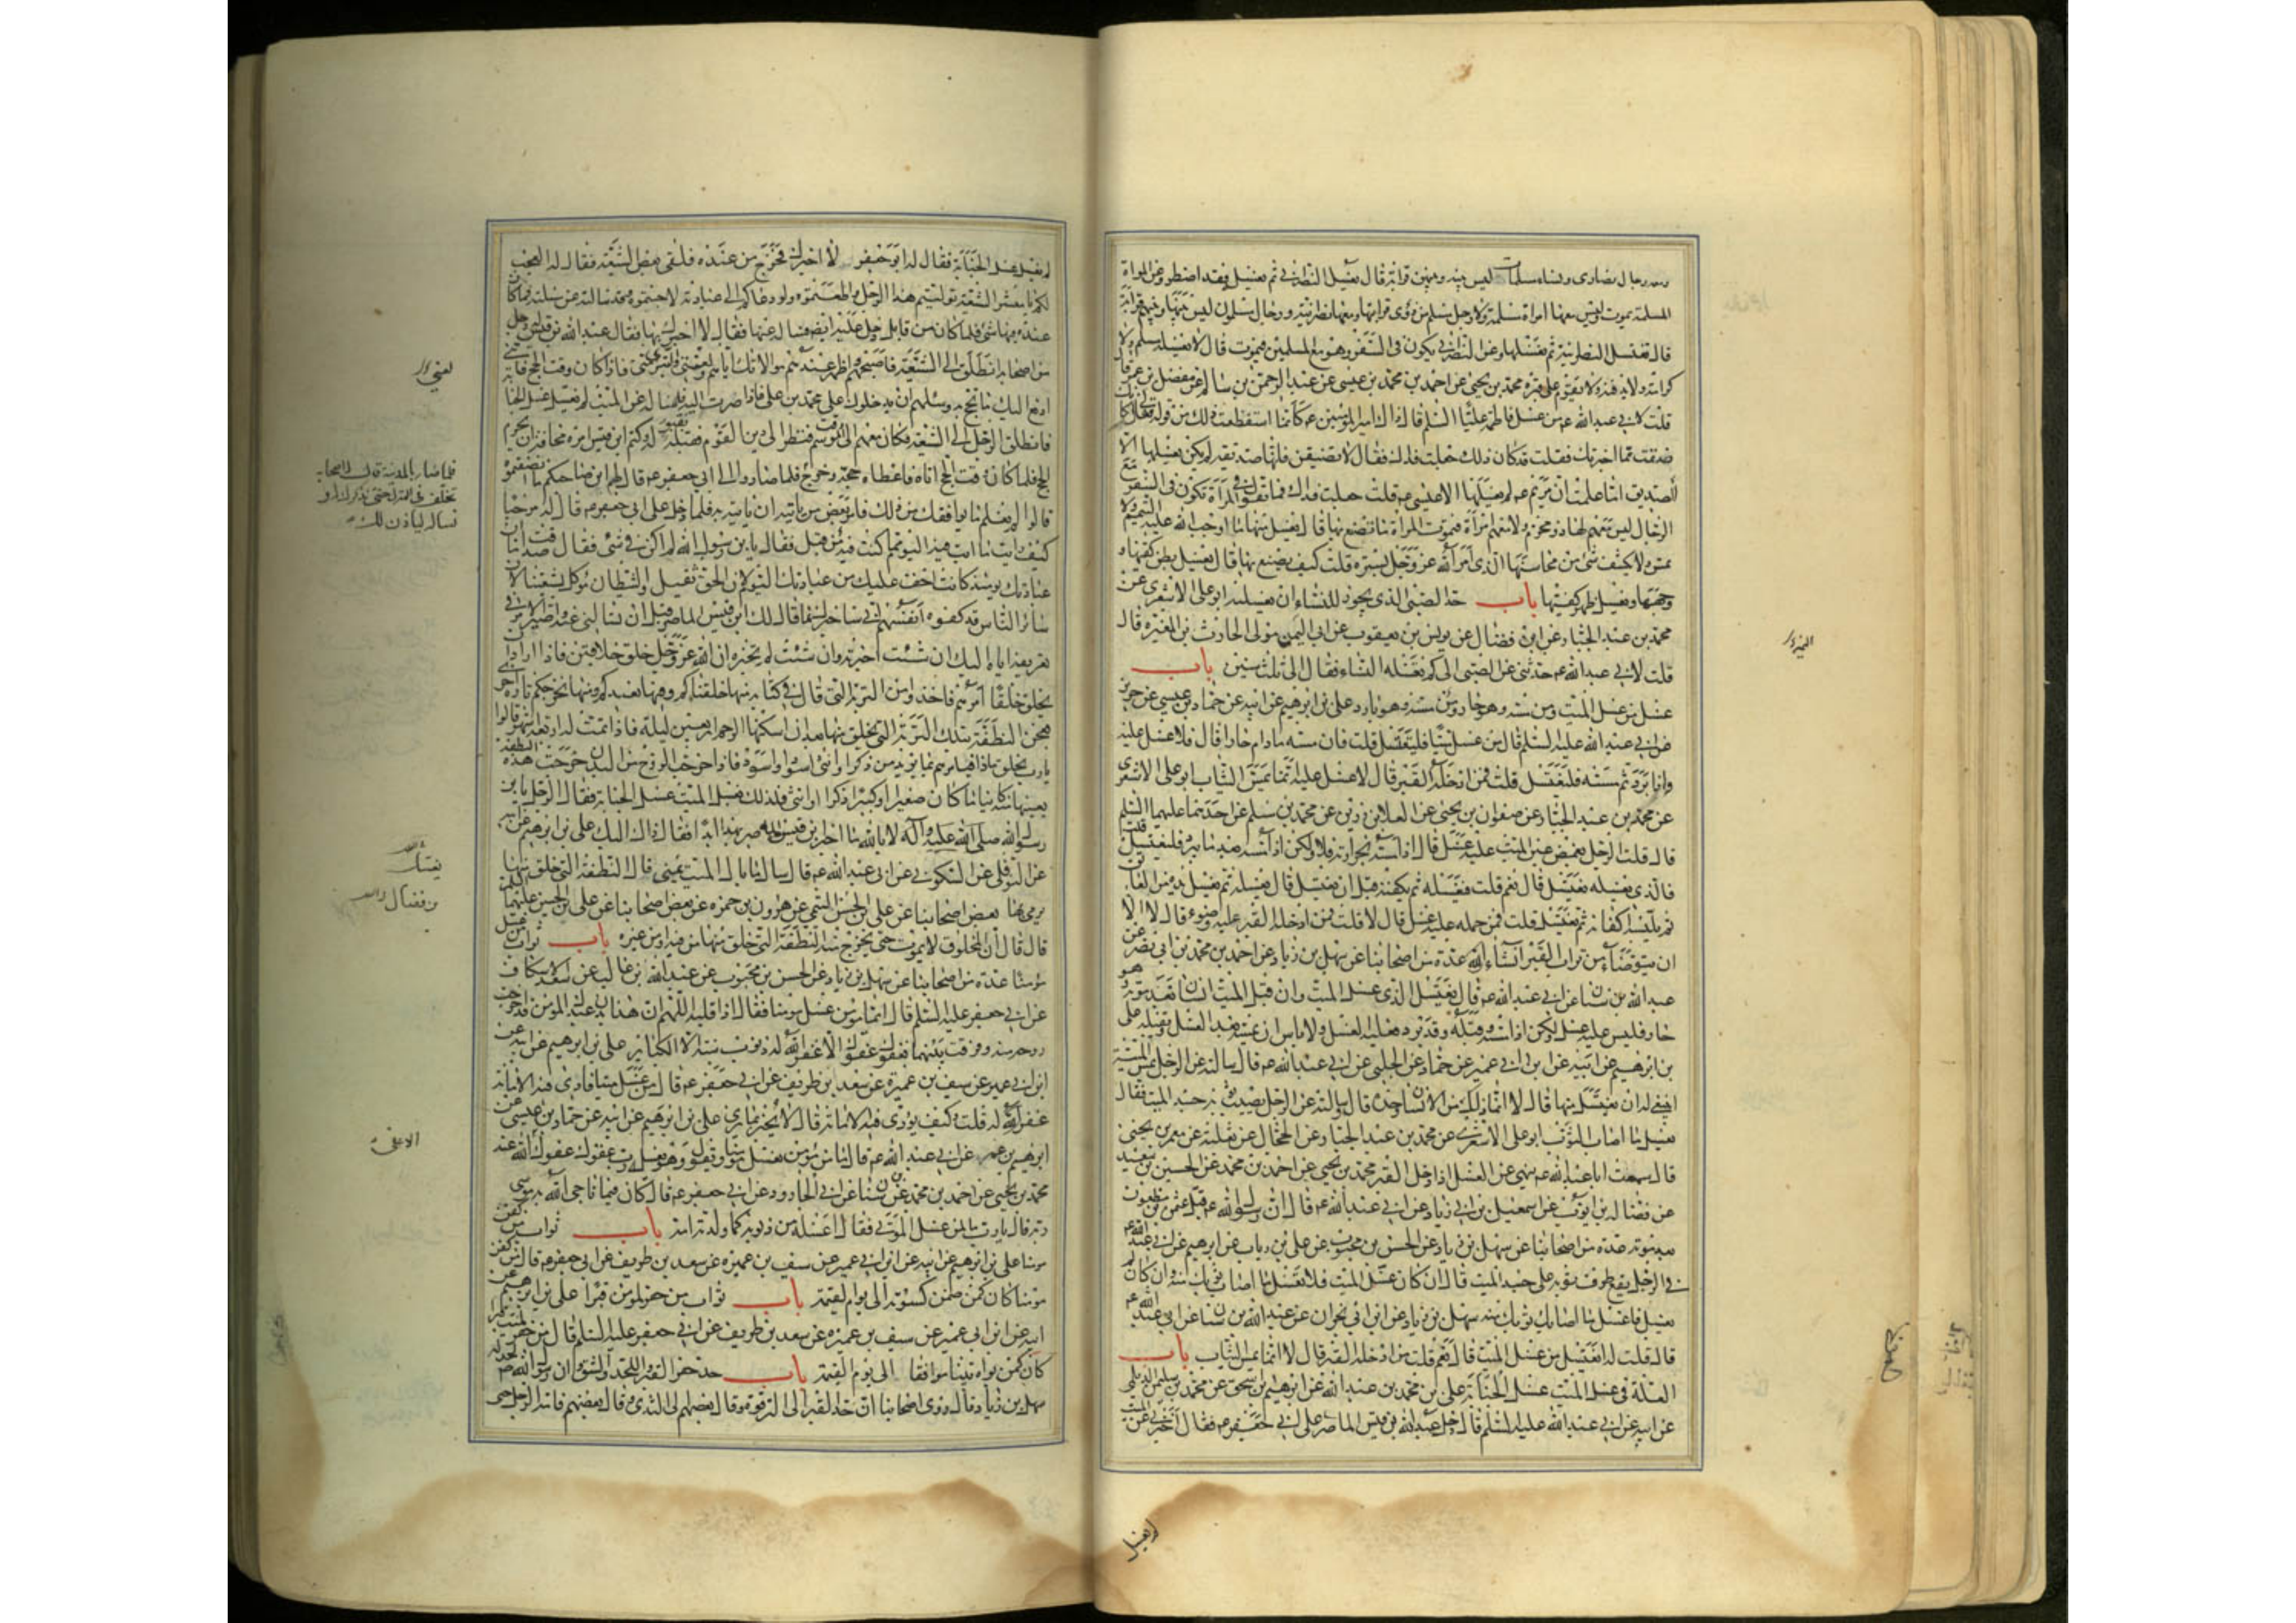 ومعه رجال نصارى ونساء مسلمات ليس بينه وبينهن قرابة قال يغتسل النصراني ثم يغسله فقد اضطر وعن المراة
المسلمة تموت وليس معها امراة مسلمة ولا رجل مسلم من ذوى قرابتها ومعها نصرانية ورجال مسلمون ليس بينها وبينهم قرابة
قال تغتسل النصرانية ثم تغسلها وعن النصراني يكون في السفر وهو مع المسلمين فيموت قال لا يغسله مسلم ولا
كرامة ولا يدفنه ولا يقوم على قبره محمد بن يحيى عن احمد بن محمد بن عيسى عن عبد الرحمن بن سالم عن مفضل بن عمر قال
قلت لابي عبد الله ع من غسل فاطمة عليها السلم قال ذاك امير المؤمنين ع كانما استفظعت ذلك من قوله فقال لي كانك
ضقت مما اخبرتك فقلت قد كان ذلك جعلت فداك فقال لا تضيقن فانها صديقة لم يكن يغسلها الا
الصديق اما علمت ان مريم ع لم يغسلها الا عيسى ع قلت جعلت فداك فما تقول في المراة تكون في السفر مع
الرجال ليس معهم لها ذو محرم ولا معهم امراة فتموت المراة ما يصنع بها قال يغسل منها ما اوجب الله عليه التيمم ولا
تمس ولا يكشف شئ من محاسنها الذى امر الله عز وجل بستره قلت كيف يصنع بها قال يغسل بطن كفيها و
وجهها ويغسل ظهر كفيها باب حد الصبى الذى يجوز للنساء ان يغسلنه ابو على الاشعرى عن
محمد بن عبد الجبار عن ابن فضال عن يونس بن يعقوب عن ابى النمير مولى الحارث بن المغيرة قال
قلت لابي عبد الله ع حدثنى عن الصبى الى كم تغسله النساء فقال الى ثلث سنين باب
غسل من غسل الميت ومن مسه وهو حار ومن مسه وهو بارد على بن ابرهيم عن ابيه عن حماد بن عيسى عن حريز
عن ابى عبد الله عليه السلم قال من غسل ميتا فليغتسل قلت فان مسه ما دام حارا قال فلا غسل عليه
واذا برد ثم مسه فليغتسل قلت فمن ادخله القبر قال لا غسل عليه انما يمس الثياب ابو على الاشعرى
عن محمد بن عبد الجبار عن صفوان بن يحيى عن العلا بن رزين عن محمد بن مسلم عن احدهما عليهما السلم
قال قلت الرجل يغمض عين الميت عليه غسل قال اذا مسه بحرارته فلا ولكن اذا مسه بعد ما يبرد فليغتسل قلت
فالذى يغسله يغتسل قال نعم قلت فيغسله ثم يكفنه قبل ان يغتسل قال يغسله ثم يغسل يديه من العاتق
ثم يلبسه اكفانه ثم يغتسل قلت فمن حمله عليه غسل قال لا قلت فمن ادخله القبر عليه وضوء قال لا الا
ان يتوضأ من تراب القبر ان شاء الله عدة من اصحابنا عن سهل بن زياد عن احمد بن محمد بن ابي نصر عن
عبد الله بن سنان عن ابى عبد الله ع قال يغتسل الذى غسل الميت وان قبل الميت انسان بعد موته وهو
حار فليس عليه غسل ولكن اذا مسه وقبله وقد برد فعليه الغسل ولا باس ان يمسه بعد الغسل ويقبله على
بن ابرهيم عن ابيه عن ابن ابى عمير عن حماد عن الحلبى عن ابى عبد الله ع قال سالته عن الرجل يمس الميتة
اينبغى له ان يغتسل منها قال لا انما ذلك من الانسان وحده قال وسالته عن الرجل يصيب ثوبه جسد الميت فقال
يغسل ما اصاب الثوب ابو على الاشعرى عن محمد بن عبد الجبار عن الحجال عن ثعلبة عن معمر بن يحيى
قال سمعت ابا عبد الله ع ينهى عن الغسل اذا دخل القبر محمد بن يحيى عن احمد بن محمد عن الحسين بن سعيد
عن فضالة بن ايوب عن اسمعيل بن ابى زياد عن ابى عبد الله ع قال ان رسول الله ص قبل عثمن بن مظعون
بعد موته عدة من اصحابنا عن سهل بن زياد عن الحسن بن محبوب عن على بن رياب عن ابرهيم عن ابى عبد الله ع
في الرجل يقع طرف ثوبه على جسد الميت قال ان كان غسل الميت فلا تغسل ما اصاب ثوبك منه وان كان لم
يغسل فاغسل ما اصاب ثوبك منه سهل بن زياد عن ابن ابى نجران عن عبد الله بن سنان عن ابى عبد الله ع
قال قلت له ايغتسل من غسل الميت قال نعم قلت من ادخله القبر قال لا انما يمس الثياب باب
العلة فى غسل الميت غسل الجنابة على بن محمد بن عبد الله عن ابرهيم بن اسحق عن محمد بن سليمن الديلمى
عن ابيه عن ابى عبد الله عليه السلم قال دخل عبد الله بن قيس الماصر على ابى جعفر ع فقال اخبرنى عن الميت
لم يغسل
لم يغسل غسل الجنابة فقال له ابو جعفر لا اخبرك فخرج من عنده فلقى بعض الشيعة فقال له العجب
لكم يا معشر الشيعة توليتم هذا الرجل واطعتموه ولو دعاكم الى عبادته لاجبتموه وقد سالته عن مسئلة فما كان
عنده فيها شئ فلما كان من قابل دخل عليه ايضا فساله عنها فقال لا اخبرك بها فقال عبد الله بن قيس لرجل
من اصحابه انطلق الى الشيعة فاصحبهم واظهر عندهم موالاتك اياهم ولعنتى والتبرى منى فاذا كان وقت الحج فاتنى
ادفع اليك ما تحج به وسلهم ان يدخلوك على محمد بن على فاذا صرت اليه فاسئله عن الميت لم يغسل غسل الجنابة
فانطلق الرجل الى الشيعة فكان معهم الى وقت الموسم فنظر الى دين القوم فقبله بقبوله وكتم ابن قيس امره مخافة ان يحرم
الحج فلما كان وقت الحج اتاه فاعطاه حجة وخرج فلما صاروا الى ابى جعفر ع
قالوا
كيف رايت ما انت فيه اليوم مما كنت فيه من قبل فقال يا بن رسول الله لم اكن في شئ فقال صدقت اما ان
عبادتك يومئذ كانت اخف عليك من عبادتك اليوم لان الحق ثقيل والشيطان موكل بشيعتنا لان
سائر الناس قد كفوه انفسهم انى ساخبرك بما قال لك ابن قيس الماصر قبل ان تسالنى عنه واصير الامر في
تعريفه اياه اليك ان شئت اخبرته وان شئت لم تخبره ان الله عز وجل خلق خلاقين فاذا اراد ان
يخلق خلقا امرهم فاخذوا من التربة التى قال في كتابه منها خلقناكم وفيها نعيدكم ومنها نخرجكم تارة اخرى
فعجن النطفة بتلك التربة التى يخلق منها بعد ان اسكنها الرحم اربعين ليلة فاذا تمت له اربعة اشهر قالوا
يا رب تخلق ماذا فيامرهم بما يريد من ذكر او انثى ابيض او اسود فاذا خرجت الروح من البدن خرجت هذه النطفة
بعينها منه كاينا ما كان صغيرا او كبيرا ذكرا او انثى فلذلك يغسل الميت غسل الجنابة فقال الرجل يا بن
رسول الله صلى الله عليه وآله لا بالله ما اخبر ابن قيس الماصر بهذا ابدا فقال ذاك اليك على بن ابرهيم عن ابيه
عن النوفلى عن السكونى عن ابى عبد الله ع قال سالته ما بال الميت يمنى قال النطفة التى خلق منها
يرمى بها بعض اصحابنا عن على بن الحسن الميثمى عن هرون بن حمزة عن بعض اصحابنا عن على بن الحسين عليهما السلم
قال قال ان المخلوق لا يموت حتى يخرج منه النطفة التى خلق منها من فيه او من غيره باب ثواب من غسل
مؤمنا عدة من اصحابنا عن سهل بن زياد عن الحسن بن محبوب عن عبد الله بن غالب عن سعد الاسكاف
عن ابى جعفر عليه السلم قال ايما مؤمن غسل مؤمنا فقال اذا قلبه اللهم ان هذا بدن عبدك المؤمن قد اخرجت
روحه منه وفرقت بينهما فعفوك عفوك الا غفر الله له ذنوب سنة الا الكبائر على بن ابرهيم عن ابيه عن
ابن ابى عمير عن سيف بن عميرة عن سعد بن طريف عن ابى جعفر ع قال من غسل ميتا فادى فيه الامانة
غفر الله له قلت وكيف يؤدى فيه الامانة قال لا يخبر بما يرى على بن ابرهيم عن ابيه عن حماد بن عيسى عن
ابرهيم بن عمر عن ابى عبد الله ع قال ما من مؤمن يغسل مؤمنا ويقول وهو يغسله رب عفوك عفوك الا عفى الله عنه
محمد بن يحيى عن احمد بن محمد عن ابن سنان عن ابى الجارود عن ابى جعفر ع قال كان فيما ناجى الله به موسى
ربه قال يا رب ما لمن غسل الموتى فقال اغسله من ذنوبه كما ولدته امه باب ثواب من كفن
مؤمنا على بن ابرهيم عن ابيه عن ابن ابى عمير عن سيف بن عميرة عن سعد بن طريف عن ابى جعفر ع قال من كفن
مؤمنا كان كمن ضمن كسوته الى يوم القيمة باب ثواب من حفر لمؤمن قبرا على بن ابرهيم عن
ابيه عن ابن ابى عمير عن سيف بن عميرة عن سعد بن طريف عن ابى جعفر عليه السلم قال من حفر لميت قبرا
كان كمن بواه بيتا موافقا الى يوم القيمة باب حد حفر القبر واللحد والشق وان رسول الله ص لحد له
سهل بن زياد قال روى اصحابنا ان حد القبر الى الترقوة وقال بعضهم الى الثدى وقال بعضهم قامة الرجل حتى
فلما صار بالمدينة قال له اصحابه
تخلف فى المنزل حتى نذكرك له و
نساله لياذن لك